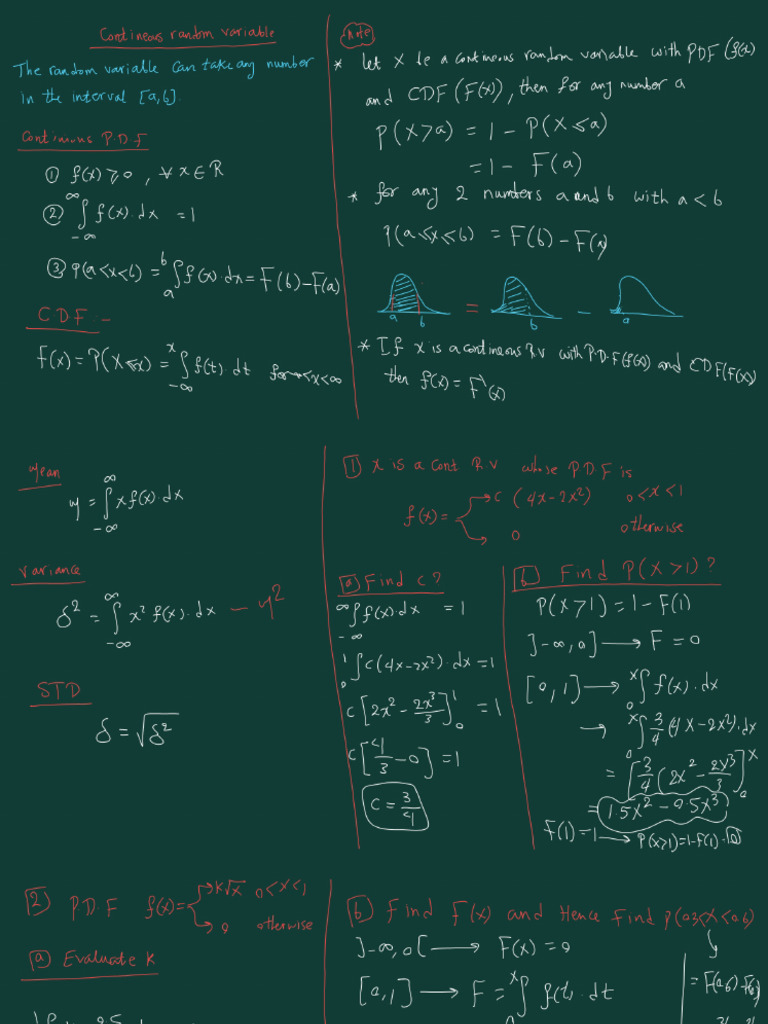 Contineous random variable
The random variable can take any number
in the interval [a,b].
Continuous P.D.F
① f(x) ≥ 0 , ∀ x ∈ R
② ∫_{-∞}^{∞} f(x).dx = 1
③ P(a<x<b) = ∫_a^b f(x).dx = F(b)-F(a)
CDF:-
F(x) = P(X≤x) = ∫_{-∞}^x f(t).dt for -∞<x<∞
Note
* let X be a contineous random variable with PDF (f(x)
and CDF (F(x)), then for any number a
P(X>a) = 1 - P(X≤a)
= 1 - F(a)
* for any 2 numbers a and b with a<b
P(a≤x≤b) = F(b)-F(a)
a b = b - a
* If x is a contineous R.V with P.D.F(f(x)) and CDF(F(x))
then f(x) = F'(x)
Mean
μ = ∫_{-∞}^{∞} x f(x).dx
Variance
δ² = ∫_{-∞}^{∞} x² f(x).dx - μ²
STD
δ = √δ²
① x is a cont R.V whose P.D.F is
f(x) = c (4x-2x²) 0<x<1
0 otherwise
ⓐ Find c?
∫_{-∞}^{∞} f(x).dx = 1
∫_0^1 c(4x-2x²).dx = 1
c[2x² - 2x³/3]_0^1 = 1
c[4/3 - 0] = 1
c = 3/4
ⓑ Find P(X>1)?
P(X>1) = 1-F(1)
]-∞,0] → F = 0
[0,1] → ∫_0^x f(x).dx
→ ∫_0^x 3/4 (4x-2x²).dx
= [3/4 (2x² - 2x³/3]_0^x
= 1.5x² - 0.5x³
F(1)=1 → P(X>1)=1-F(1)=0
② P.D.F f(x) = k√x 0<x<1
0 otherwise
ⓐ Evaluate k
ⓑ Find F(x) and Hence find P(0.3<X<0.6)
]-∞,0[ → F(x) = 0
[0,1] → F = ∫_0^x f(t).dt
= F(0.6)-F(